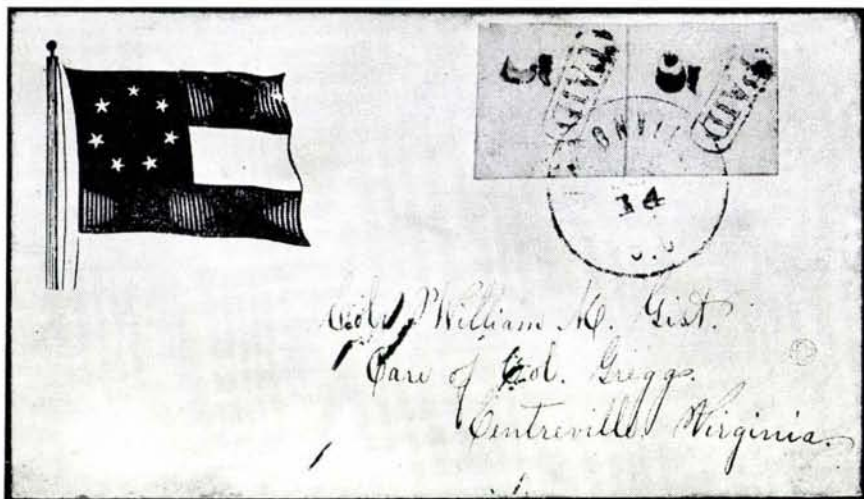 5 PAID 5 PAID
14
William M. Gist.
Care of Col. Gregg.
Centreville, Virginia.